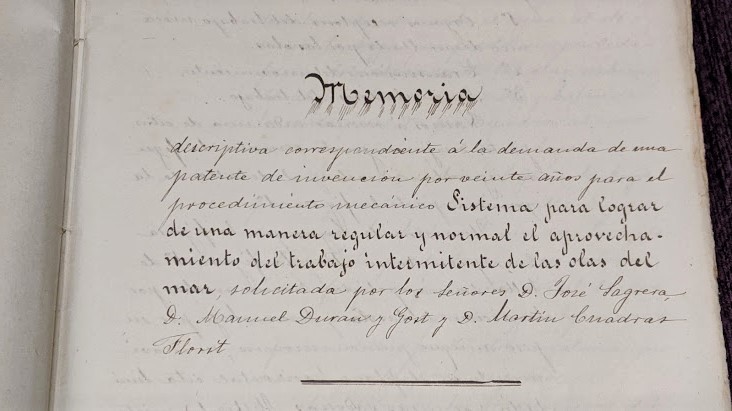 Memoria
descriptiva correspondiente á la demanda de una
patente de invención por veinte años para el
procedimiento mecánico Sistema para lograr
de una manera regular y normal el aprovecha-
miento del trabajo intermitente de las olas del
mar, solicitada por los señores D. José Sagrera,
D. Manuel Duran y Gost y D. Martín Cuadras
Florit